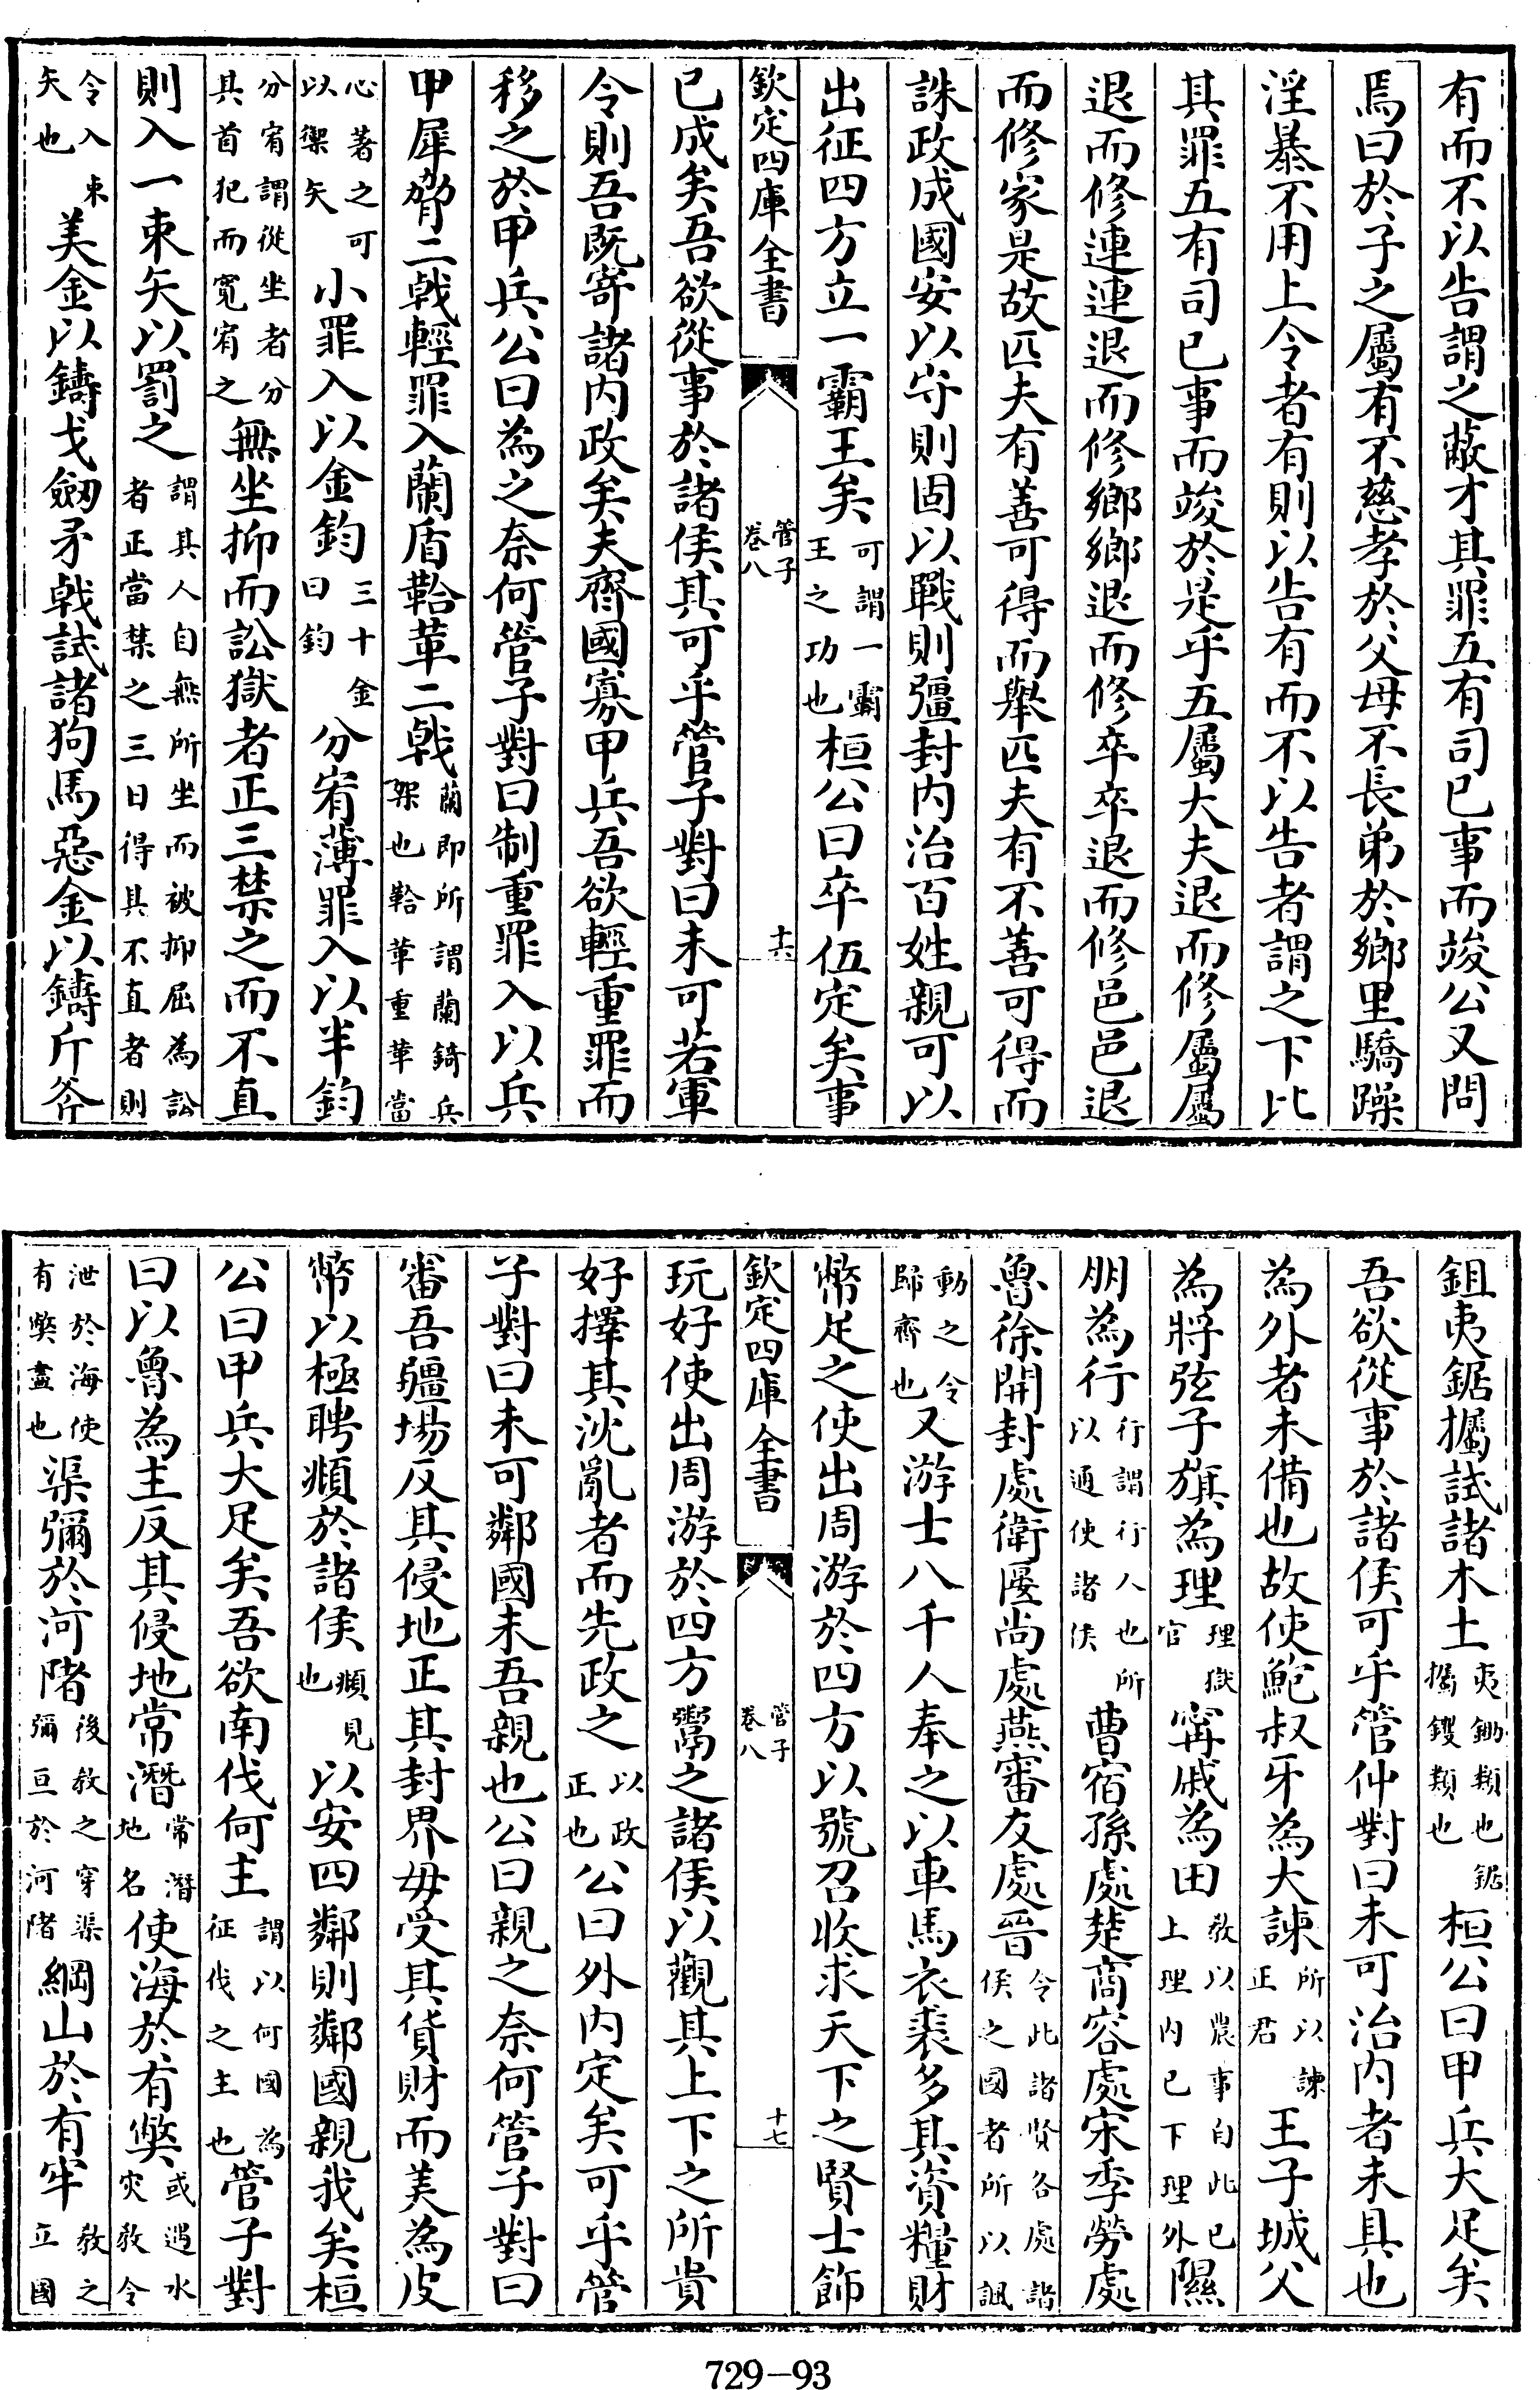 有而不以告謂之蔽才其罪五有司已事而竣公又問
焉曰於子之屬有不慈孝於父母不長弟於鄉里驕躁
淫暴不用上令者有則以告有而不以告者謂之下比
其罪五有司已事而竣於是乎五屬大夫退而修屬屬
退而修連連退而修鄉鄉退而修卒卒退而修邑邑退
而修家是故匹夫有善可得而舉匹夫有不善可得而
誅政成國安以守則固以戰則彊封内治百姓親可以
出征四方立一霸王矣可謂一霸王之功也桓公曰卒伍定矣事
欽定四庫全書 管子卷八 十六
已成矣吾欲從事於諸侯其可乎管子對曰未可若軍
令則吾既寄諸内政矣夫齊國寡甲兵吾欲輕重罪而
移之於甲兵公曰為之奈何管子對曰制重罪入以兵
甲犀脅二戟輕罪入蘭盾鞈革二戟蘭即所謂蘭錡兵架也鞈革重革當
心著之可以禦矢小罪入以金鈞三十金曰鈞分宥薄罪入以半鈞
分宥謂從坐者分其首犯而寛宥之無坐抑而訟獄者正三禁之而不直
則入一束矢以罰之謂其人自無所坐而被抑屈為訟者正當禁之三日得其不直者則
令入束矢也美金以鑄戈劒矛戟試諸狗馬惡金以鑄斤斧
鉏夷鋸欘試諸木土夷鋤類也鋸欘钁類也桓公曰甲兵大足矣
吾欲從事於諸侯可乎管仲對曰未可治内者未具也
為外者未備也故使鮑叔牙為大諫所以諫正君王子城父
為將弦子旗為理理獄官甯戚為田教以農事自此已上理内已下理外隰
朋為行行謂行人也所以通使諸侯曹宿孫處楚商容處宋季勞處
魯徐開封處衛匽尚處燕審友處晉令此諸賢各處諸侯之國者所以諷
動之令歸齊也又游士八千人奉之以車馬衣裘多其資糧財
幣足之使出周游於四方以號召收求天下之賢士飾
欽定四庫全書 管子卷八 十七
玩好使出周游於四方鬻之諸侯以觀其上下之所貴
好擇其沈亂者而先政之以政正也公曰外内定矣可乎管
子對曰未可鄰國未吾親也公曰親之奈何管子對曰
審吾疆場反其侵地正其封界毋受其貨財而美為皮
幣以極聘頫於諸侯頫見也以安四鄰則鄰國親我矣桓
公曰甲兵大足矣吾欲南伐何主謂以何國為征伐之主也管子對
曰以魯為主反其侵地常潛常潛地名使海於有獘或遇水災教令
泄於海使有獘盡也渠彌於河陼後教之穿渠彌亘於河陼綱山於有牢教之立國
729-93